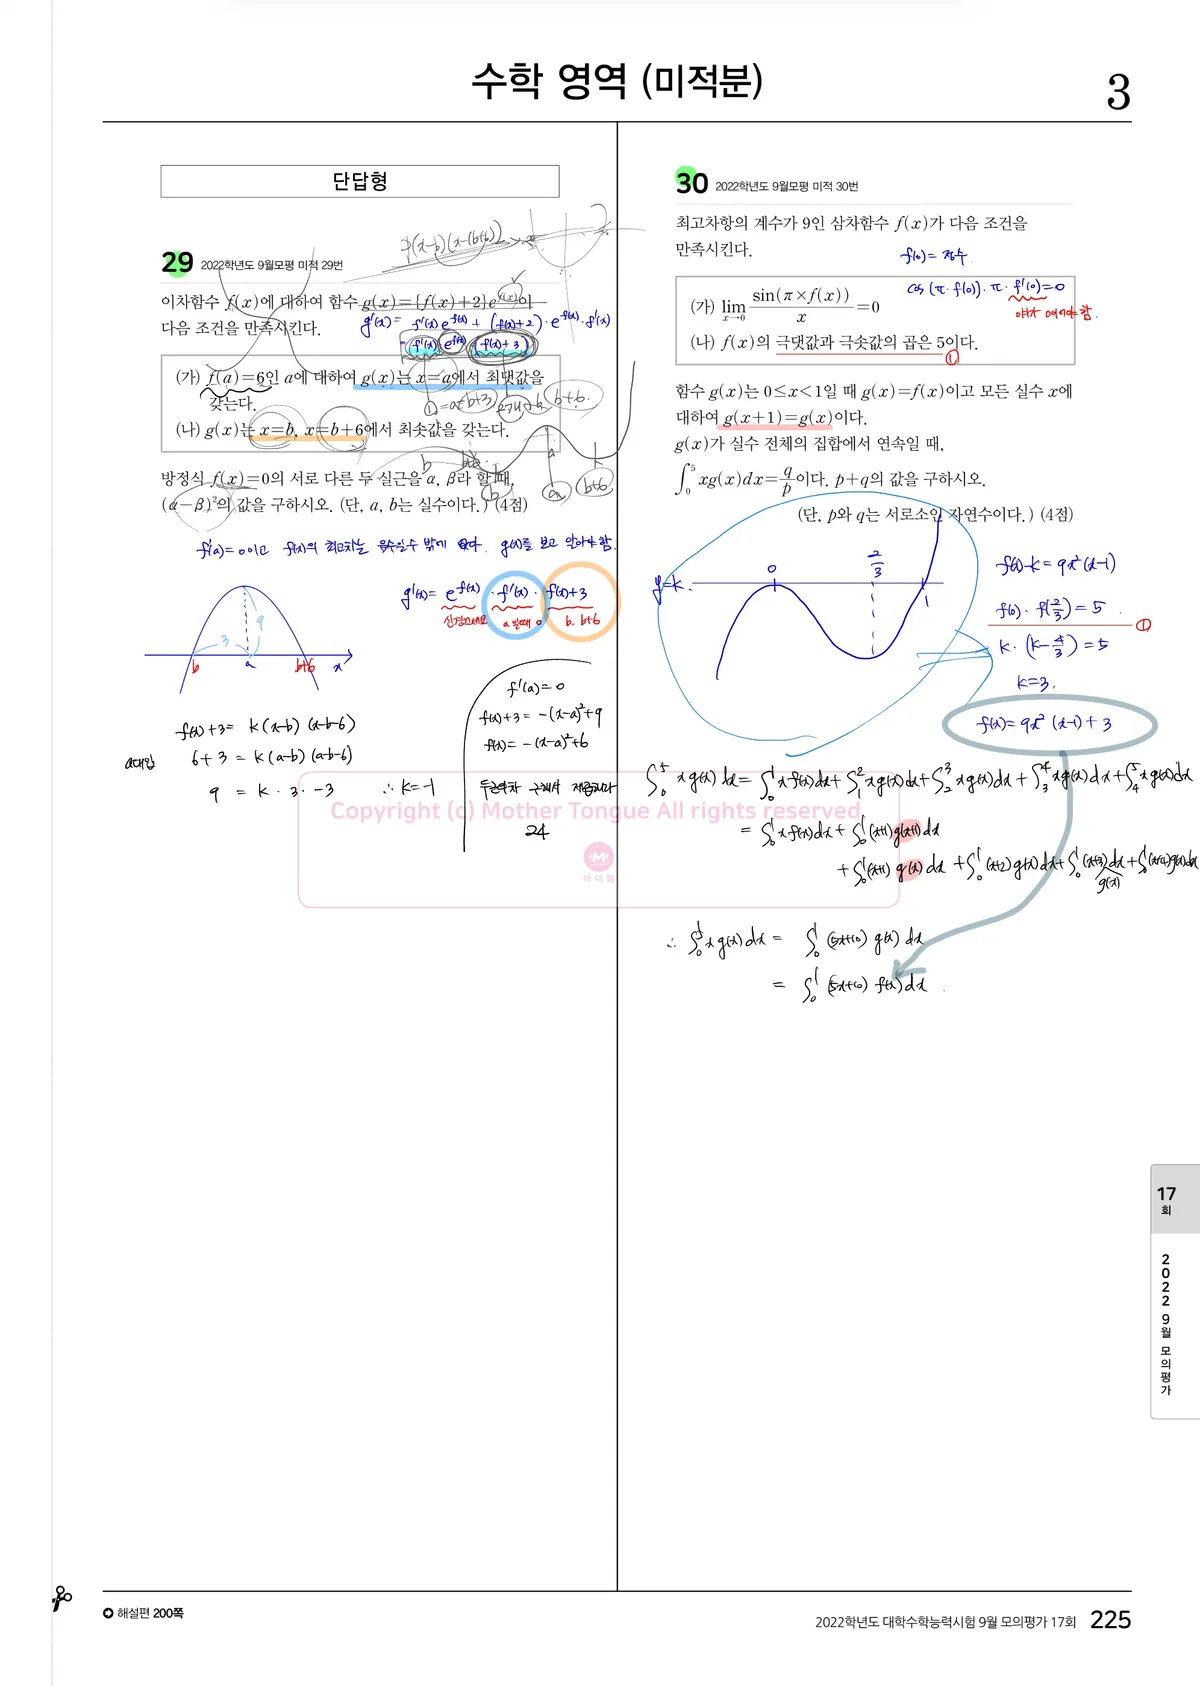 수학 영역 (미적분)
3
단답형
29 2022학년도 9월모평 미적 29번
이차함수 f(x)에 대하여 함수 g(x)={f(x)+2}e^{f(x)}이
다음 조건을 만족시킨다.
g'(x)= f'(x)e^{f(x)} + (f(x)+2)·e^{f(x)}·f'(x)
= f'(x) e^{f(x)} (f(x)+3)
(가) f(a)=6인 a에 대하여 g(x)는 x=a에서 최댓값을
갖는다.
(나) g(x)는 x=b, x=b+6에서 최솟값을 갖는다.
방정식 f(x)=0의 서로 다른 두 실근을 α, β라 할 때,
(α-β)²의 값을 구하시오. (단, a, b는 실수이다.) (4점)
f'(a)=0이고 f(x)의 최고차는 음수일수 밖에 없다. g(x)를 보고 알아야 함.
g'(x)= e^{f(x)} · f'(x) · f(x)+3
a일때 0
b, b+6
9
3
b a b+6 x
f(x)+3= k(x-b)(x-b-6)
a대입 6+3 = k(a-b)(a-b-6)
9 = k·3·-3 ∴ k=-1
f'(a)=0
f(x)+3=-(x-a)²+9
f(x)=-(x-a)²+6
24
30 2022학년도 9월모평 미적 30번
최고차항의 계수가 9인 삼차함수 f(x)가 다음 조건을
만족시킨다.
f(0)= 정수
cos(π·f(0))·π·f'(0)=0
(가) lim_{x→0} sin(π×f(x))/x=0
얘가 0이어야 함.
(나) f(x)의 극댓값과 극솟값의 곱은 5이다.
①
함수 g(x)는 0≤x<1일 때 g(x)=f(x)이고 모든 실수 x에
대하여 g(x+1)=g(x)이다.
g(x)가 실수 전체의 집합에서 연속일 때,
∫_0^5 xg(x)dx=q/p이다. p+q의 값을 구하시오.
(단, p와 q는 서로소인 자연수이다.) (4점)
y=k.
0 2/3 1
f(x)-k=9x²(x-1)
f(0)·f(2/3)=5 ①
k·(k-4/3)=5
k=3.
f(x)=9x²(x-1)+3
∫_0^5 xg(x)dx=∫_0^1 xf(x)dx+∫_1^2 xg(x)dx+∫_2^3 xg(x)dx+∫_3^4 xg(x)dx+∫_4^5 xg(x)dx
= ∫_0^1 xf(x)dx+∫_0^1 (x+1)g(x+1)dx
+∫_0^1 (x+1)g(x)dx+∫_0^1 (x+2)g(x)dx+∫_0^1 (x+3)dx+∫_0^1 (x+4)g(x)dx
g(x)
∴ ∫_0^5 xg(x)dx= ∫_0^1 (5x+10)g(x)dx
= ∫_0^1 (5x+10)f(x)dx.
Copyright (c) Mother Tongue All rights reserved
마더텅
17
회
2022 9월 모의평가
해설편 200쪽
2022학년도 대학수학능력시험 9월 모의평가 17회 225